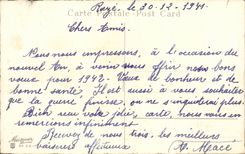 Rezé, le 30-12-1941.
Carte Postale - Post Card
Chers Amis.
Nous nous empressons, à l'occasion du
nouvel An, à venir vous offrir nos bons
vœux pour 1942. Vœux de bonheur et de
bonne santé. Il est aussi à vous souhaiter
que la guerre finisse, on ne s'inquiétera plus.
Bien reçu votre jolie carte, nous vous en
remercions infiniment
Recevez de nous trois, les meilleurs
baisers affectueux